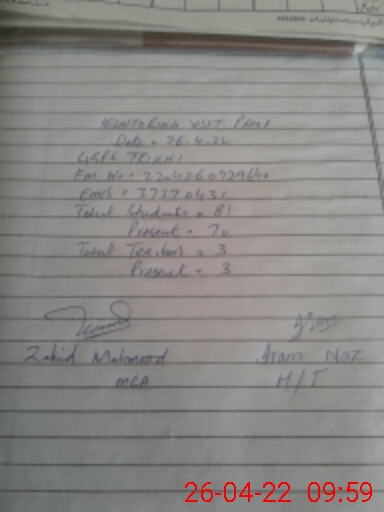 MONITORING VISIT PERF
Date = 26.4.22
GGPS TRIKHI
Emis = 37370431
Total Students = 81
Present = 70
Total Teachers = 3
Present = 3
Zahid Mahmood
Iram Naz
MEA
H/T
26-04-22 09:59